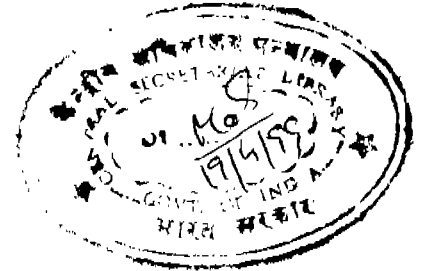 केन्द्रीय सचिवालय ग्रन्थालय
CENTRAL SECRETARIAT LIBRARY
19/4/99
GOVT. OF INDIA
भारत सरकार